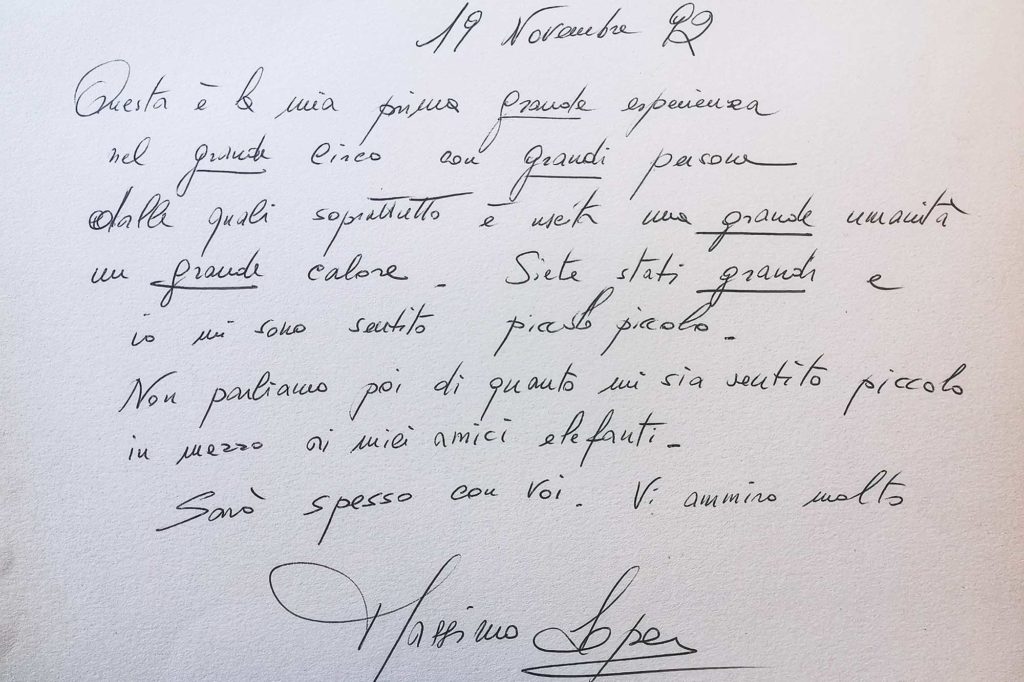 19 Novembre 92
Questa è la mia prima grande esperienza
nel grande Circo con grandi persone
dalle quali soprattutto è uscita una grande umanità
un grande calore. Siete stati grandi e
io mi sono sentito piccolo piccolo.
Non parliamo poi di quanto mi sia sentito piccolo
in mezzo ai miei amici elefanti.
Sarò spesso con Voi. Vi ammiro molto
Massimo Lopez